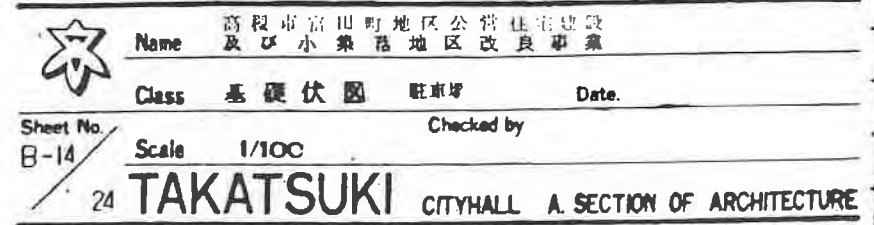 Name 高槻市富田町地区公営住宅建設
及び小集落地区改良事業
Class 基礎伏図 駐車場 Date.
Sheet No. B-14/24
Checked by
Scale 1/100
TAKATSUKI CITYHALL A. SECTION OF ARCHITECTURE